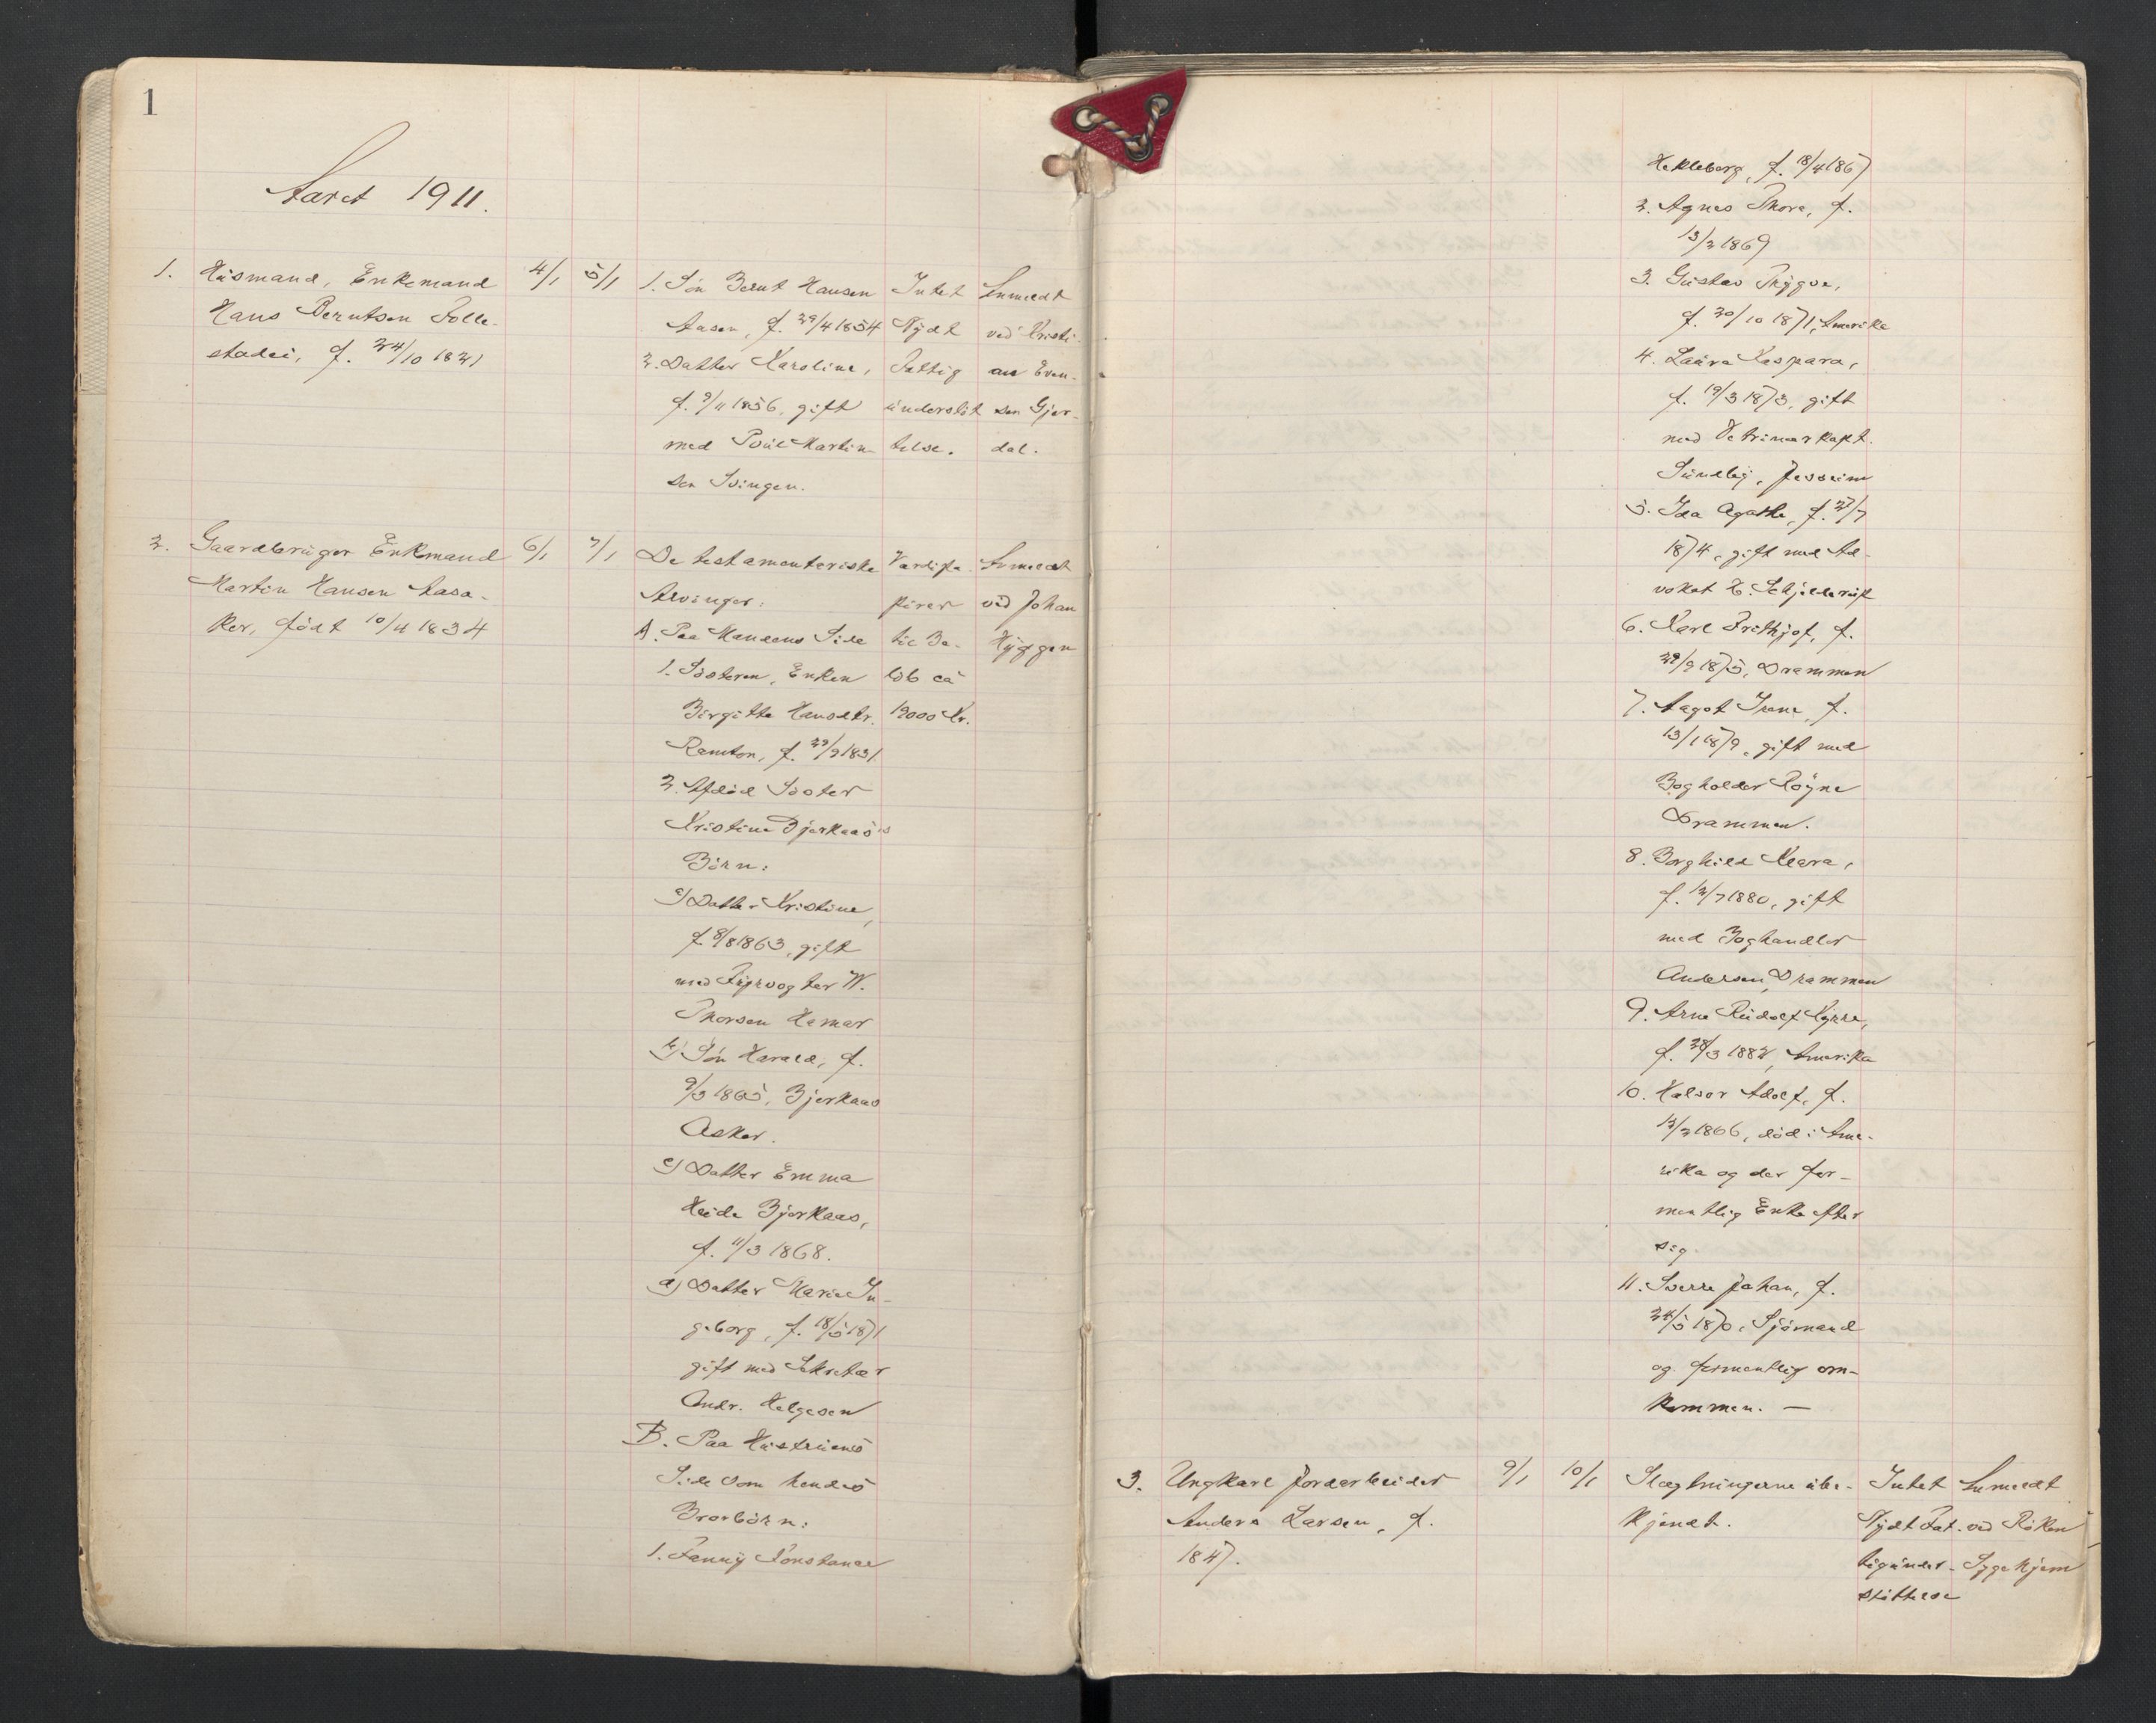 1
Aaret 1911.
1. Husmand, Enkemand
Hans Berntsen Folle-
stadei, f. 24/10 1821
4/1 5/1
1. Søn Bernt Hansen
Aasen, f. 29/4 1854
2. Datter Karoline,
f. 9/11 1856, gift
med Poul Martin-
sen Svingen.
Intet
Nydt
Fattig
understøt
telse.
Anmeldt
ved Kristi-
an Even-
sen Gjer-
dal.
2. Gaardbruger Enkemand
Martin Hansen Aasa-
ker, født 10/4 1834
6/1 7/1
De testamenteriske
Arvinger:
A. Paa Mandens Side
1. Søsteren, Enken
Birgitte Hansdtr.
Ramton, f. 29/9 1831
2. Afdød Søster
Kristine Bjerkaas's
Børn:
a) Datter Kristine,
f. 8/8 1863, gift
med Fyrvogter W.
Thorsen Hamar
b) Søn Harald, f.
9/5 1865, Bjerkaas
Asker.
c) Datter Emma
Bjerkaas,
f. 11/3 1868.
d) Datter Marie In-
geborg, f. 18/5 1871
gift med Sekretær
Andr. Helgesen
B. Paa Hustruens
Side som hendes
Brorbørn:
1. Fanny Constance
Værdipa-
pirer
til Be-
løb ca
12000 Kr.
Anmeldt
ved Johan
Hyggen
Hekleberg, f. 18/4 1867
2. Agnes Thora, f.
13/2 1869
3. Gustav Trygve,
f. 30/10 1871, Amerika
4. Laura Kaspara,
f. 19/3 1873, gift
med Veterinærkapt.
Sundby, Jessheim
5. Ida Agathe, f. 27/7
1874, gift med Ad-
vokat H. Schjelderup
6. Karl Frithjof, f.
29/9 1875, Drammen
7. Aagot Irene, f.
13/1 1879, gift med
Bogholder Røyne
Drammen.
8. Borghild Klara,
f. 12/7 1880, gift
med Boghandler
Andersen, Drammen
9. Arne Rudolf Kyrre,
f. 28/3 1882, Amerika
10. Halvor Adolf, f.
12/2 1866, død i Ame-
rika og der for-
mentlig Enke efter
sig.
11. Sverre Johan, f.
24/5 1870, Sjømand
og formentlig om-
kommen. —
3. Ungkarl Jordarbeider
Anders Larsen, f.
1847.
9/1 10/1
Slægtningerne ube-
kjendt.
Intet
Nydt Fat-
tigunder-
støttelse
Anmeldt
ved Røken
Sygehjem